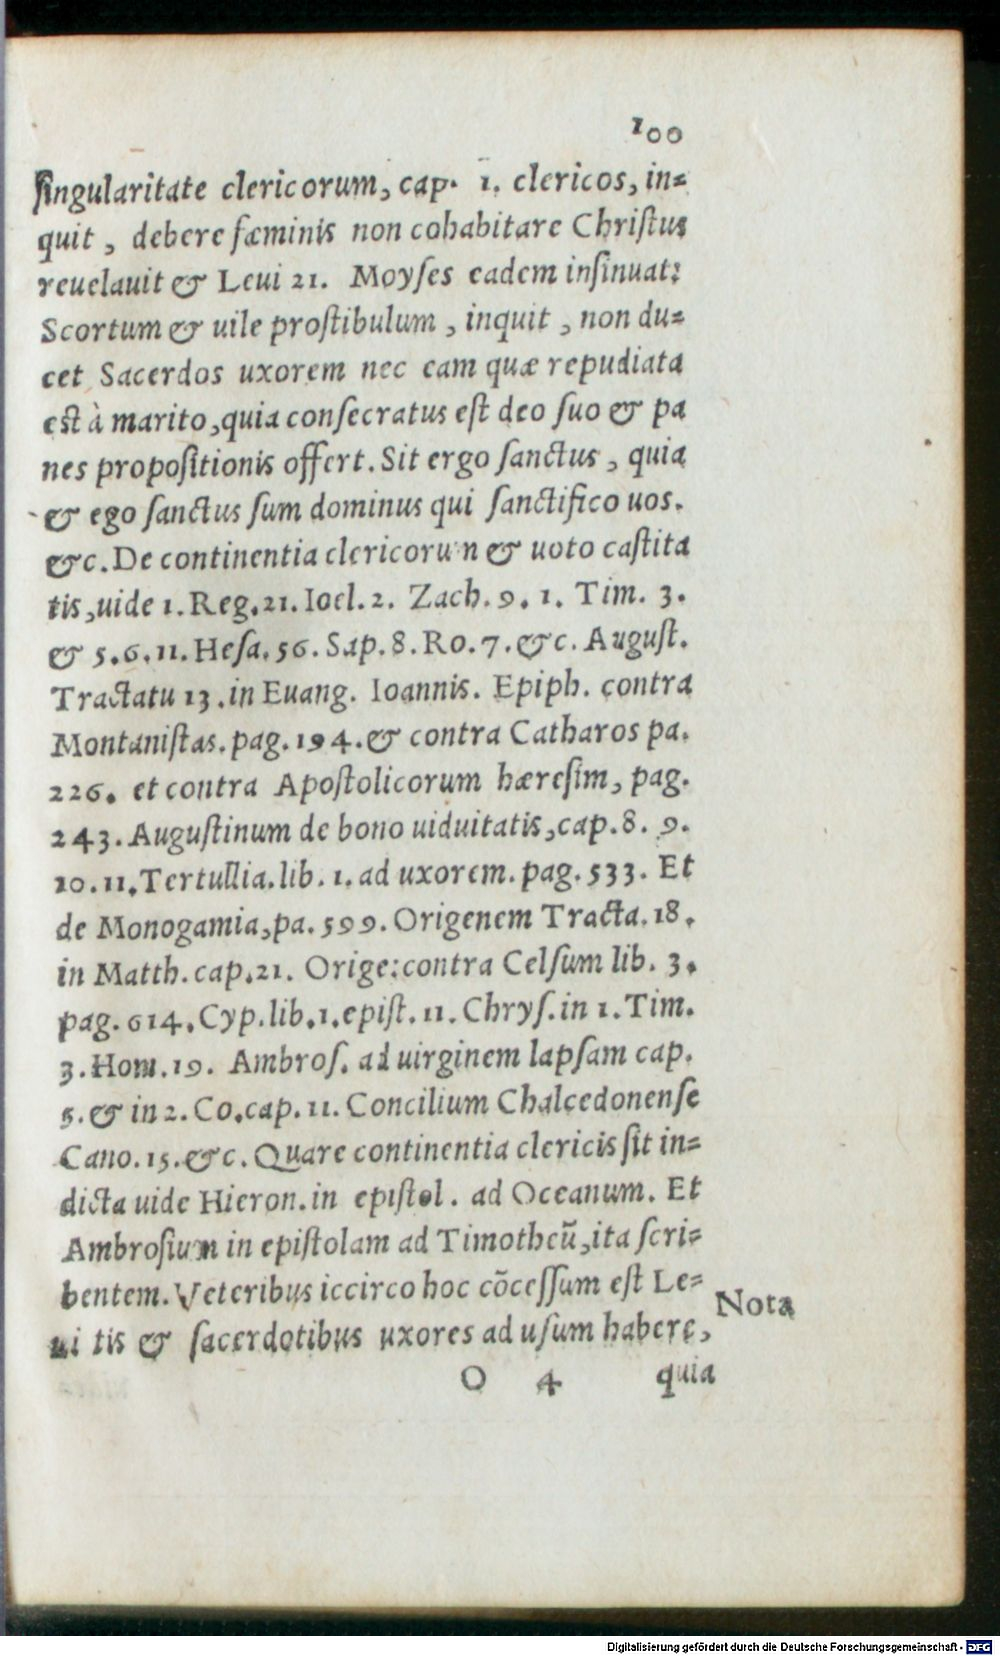 100
singularitate clericorum, cap. 1. clericos, in=
quit, debere fœminis non cohabitare Christus
reuelauit & Leui 21. Moyses eadem insinuat:
Scortum & uile prostibulum, inquit, non du=
cet Sacerdos uxorem nec eam quæ repudiata
est à marito, quia consecratus est deo suo & pa
nes propositionis offert. Sit ergo sanctus, quia
& ego sanctus sum dominus qui sanctifico uos.
&c. De continentia clericorum & uoto castita
tis, uide 1. Reg. 21. Ioel. 2. Zach. 9. 1. Tim. 3.
& 5. 6. 11. Hesa. 56. Sap. 8. Ro. 7. &c. August.
Tractatu 13. in Euang. Ioannis. Epiph. contra
Montanistas. pag. 194. & contra Catharos pa.
226. et contra Apostolicorum hæresim, pag.
243. Augustinum de bono uiduitatis, cap. 8. 9.
10. 11. Tertullia. lib. 1. ad uxorem. pag. 533. Et
de Monogamia, pa. 599. Origenem Tracta. 18.
in Matth. cap. 21. Orige: contra Celsum lib. 3.
pag. 614. Cyp. lib. 1. epist. 11. Chrys. in 1. Tim.
3. Hom. 19. Ambros. ad uirginem lapsam cap.
5. & in 2. Co. cap. 11. Concilium Chalcedonense
Cano. 15. &c. Quare continentia clericis sit in=
dicta uide Hieron. in epistol. ad Oceanum. Et
Ambrosium in epistolam ad Timotheū, ita scri=
bentem. Veteribus iccirco hoc cōcessum est Le=
ui tis & sacerdotibus uxores ad usum habere,
Nota
O 4 quia
Digitalisierung gefördert durch die Deutsche Forschungsgemeinschaft - DFG